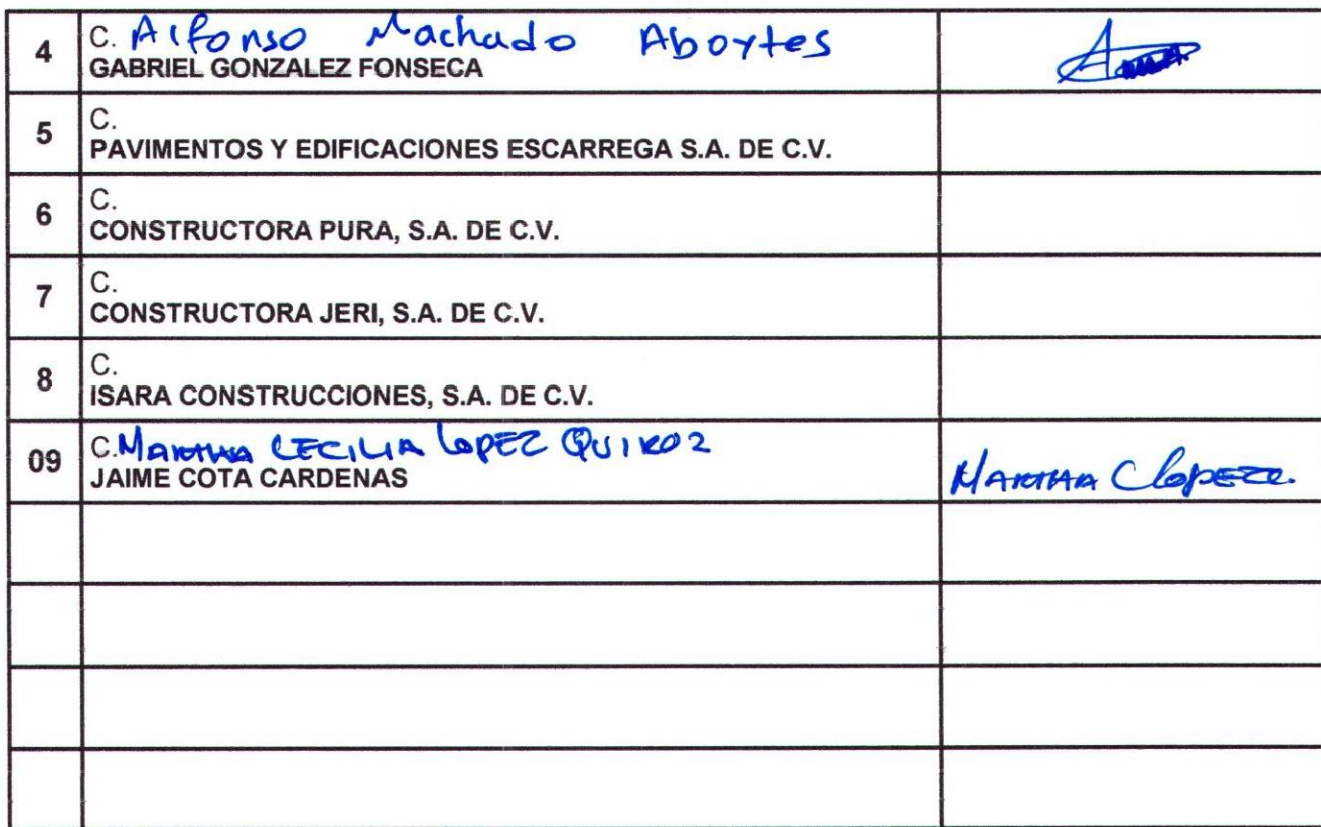 4 C. Alfonso Machado Aboytes
GABRIEL GONZALEZ FONSECA
5 C.
PAVIMENTOS Y EDIFICACIONES ESCARREGA S.A. DE C.V.
6 C.
CONSTRUCTORA PURA, S.A. DE C.V.
7 C.
CONSTRUCTORA JERI, S.A. DE C.V.
8 C.
ISARA CONSTRUCCIONES, S.A. DE C.V.
09 C. MARTHA CECILIA LOPEZ QUIROZ
JAIME COTA CARDENAS
MARTHA C LOPEZ.